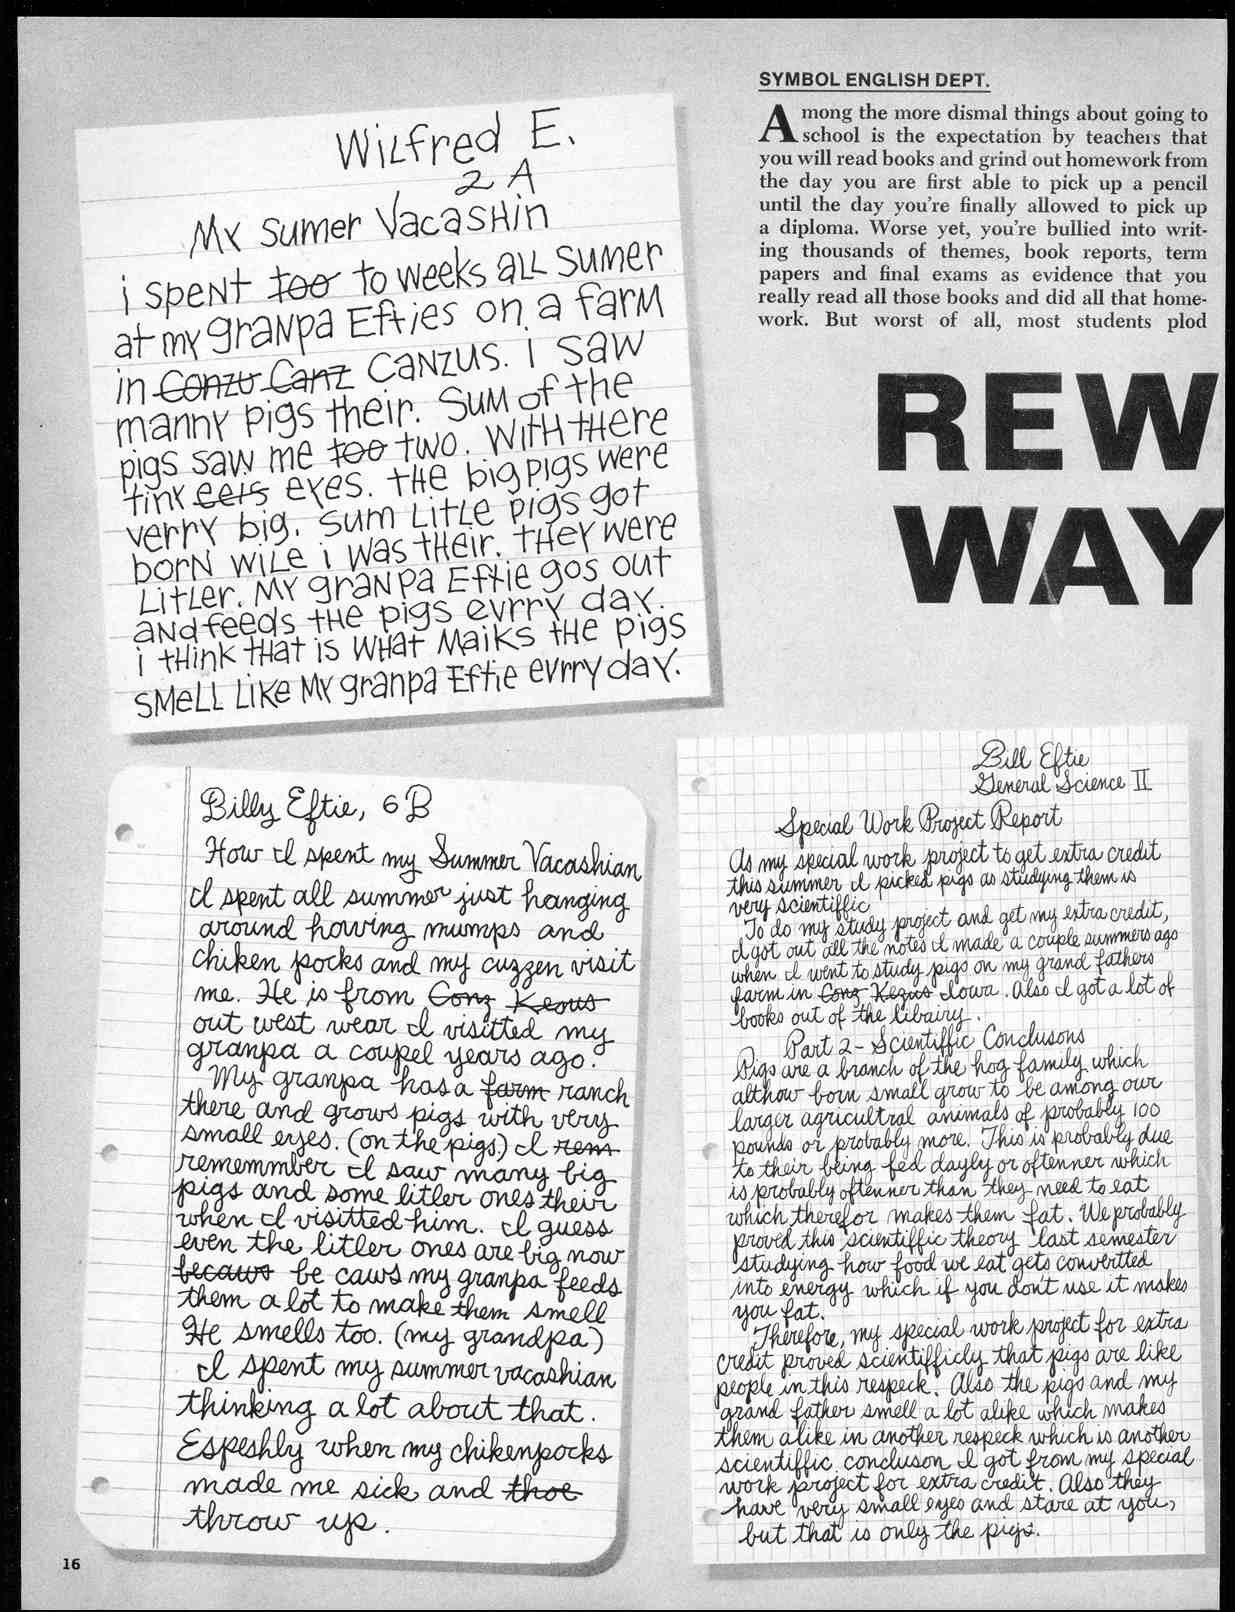 SYMBOL ENGLISH DEPT.
Among the more dismal things about going to
school is the expectation by teachers that
you will read books and grind out homework from
the day you are first able to pick up a pencil
until the day you're finally allowed to pick up
a diploma. Worse yet, you're bullied into writ-
ing thousands of themes, book reports, term
papers and final exams as evidence that you
really read all those books and did all that home-
work. But worst of all, most students plod
REW
WAY
Wilfred E.
2 A
My sumer Vacashin
i spent too to weeks all sumer
at my granpa Efties on a farm
in Conzu Canz Canzus. i saw
manny pigs their. Sum of the
pigs saw me too two. With there
tiny eers eyes. The big pigs were
verry big. Sum Litle pigs got
born wile i was their. They were
Litler. My granpa Eftie gos out
and feeds the pigs evrry day.
i think that is what maiks the pigs
smell like my granpa Eftie evrry day.
Billy Eftie, 6 B
How I spent my Summer Vacashian
I spent all summer just hanging
around howing mumps and
chiken pocks and my cuzzen visit
me. He is from Conz Keous
out west wear I visitted my
granpa a coupel years ago.
My granpa has a farm ranch
there and grows pigs with very
small eyes. (on the pigs.) I rem
rememmber I saw many big
pigs and some litler ones their
when I visitted him. I guess
even the litler ones are big now
becaws be caws my granpa feeds
them a lot to make them smell
He smells too. (my grandpa)
I spent my summer vacashian
thinking a lot about that.
Espeshly when my chikenpocks
made me sick and thoe
throw up.
Bill Eftie
General Science II
Special Work Project Report
As my special work project to get extra credit
this summer I picked pigs as studying them is
very scientiffic
To do my study project and get my extra credit,
I got out all the notes I made a couple summers ago
when I went to study pigs on my grand fathers
farm in Conz Kezus Iowa. Also I got a lot of
books out of the libairy.
Part 2 - Scientiffic Conclusons
Pigs are a branch of the hog family which
althow born small grow to be among our
larger agricultral animals of probably 100
pounds or probably more. This is probably due
to their being fed dayly or oftenner which
is probably oftenner than they need to eat
which therefor makes them fat. We probably
proved this scientiffic theory last semester
studying how food we eat gets convertted
into energy which if you don't use it makes
you fat.
Therefore, my special work project for extra
credit proved scientifficly that pigs are like
people in this respeck. Also the pigs and my
grand father smell a lot alike which makes
them alike in another respeck which is another
scientiffic concluson I got from my special
work project for extra credit. Also they
have very small eyes and stare at you,
but that is only the pigs.
16